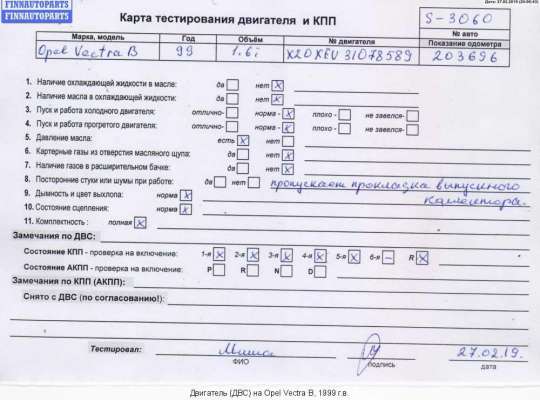 FINNAUTOPARTS
FINNAUTOPARTS
FINNAUTOPARTS
Карта тестирования двигателя и КПП
S-3060
№ авто
Марка, модель Год Объём № двигателя Показание одометра
Opel Vectra B 99 1.6i X20XEV 31078589 203696
1. Наличие охлаждающей жидкости в масле: да нет X
2. Наличие масла в охлаждающей жидкости: да нет X
3. Пуск и работа холодного двигателя: отлично- норма - X плохо - не завелся-
4. Пуск и работа прогретого двигателя: отлично- норма - X плохо - не завелся-
5. Давление масла: есть X нет
6. Картерные газы из отверстия масляного щупа: да нет
7. Наличие газов в расширительном бачке: да нет
8. Посторонние стуки или шумы при работе: да нет пропускает прокладка выпускного
9. Дымность и цвет выхлопа: норма X коллектора.
10. Состояние сцепления: норма X
11. Комплектность : полная X
Замечания по ДВС:
Состояние КПП - проверка на включение: 1-я X 2-я X 3-я X 4-я X 5-я X 6-я – R X
Состояние АКПП - проверка на включение: P R N D
Замечания по КПП (АКПП):
Снято с ДВС (по согласованию!):
Тестировал: Миша 27.02.19.
ФИО подпись дата
Двигатель (ДВС) на Opel Vectra B, 1999 г.в.